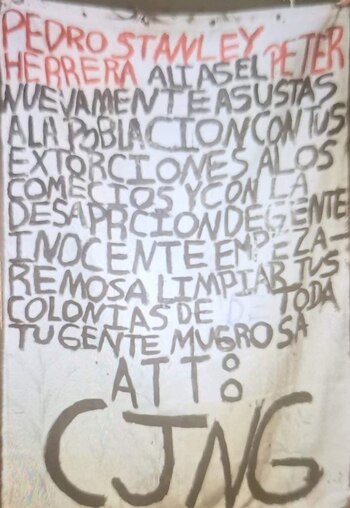 PEDRO STANLEY PETER
HERRERA ALIASEL
NUEVAMENTE ASUSTAS
A LA POBLACION CON TUS
EXTORCIONES A LOS
COMECIOS Y CON LA
DESAPRCION DE GENTE
INOCENTE EMPEZA-
REMOS A LIMPIAR TUS
COLONIAS DE TODA
TU GENTE MUGROSA
ATT:
CJNG